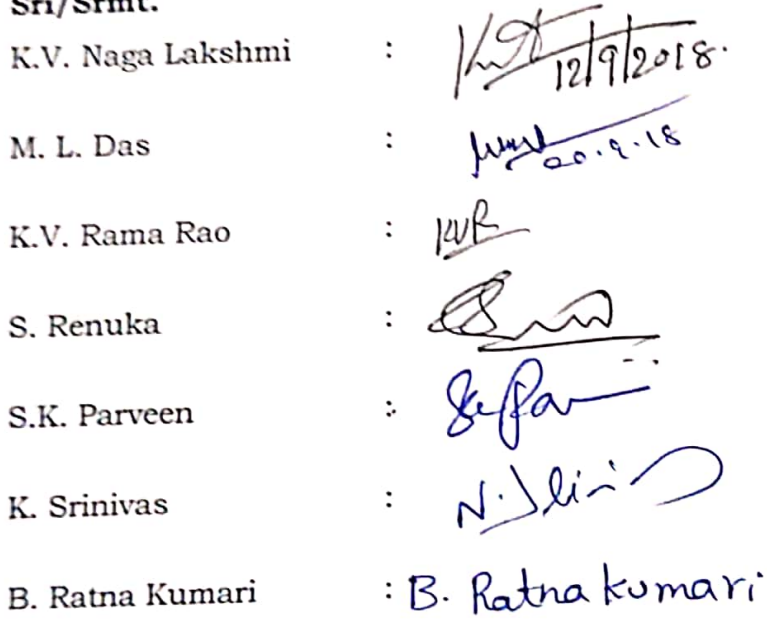 Sri/Srimt.
K.V. Naga Lakshmi : 12/9/2018.
M. L. Das : 20.9.18
K.V. Rama Rao : KVR
S. Renuka :
S.K. Parveen :
K. Srinivas :
B. Ratna Kumari : B. Ratna kumari